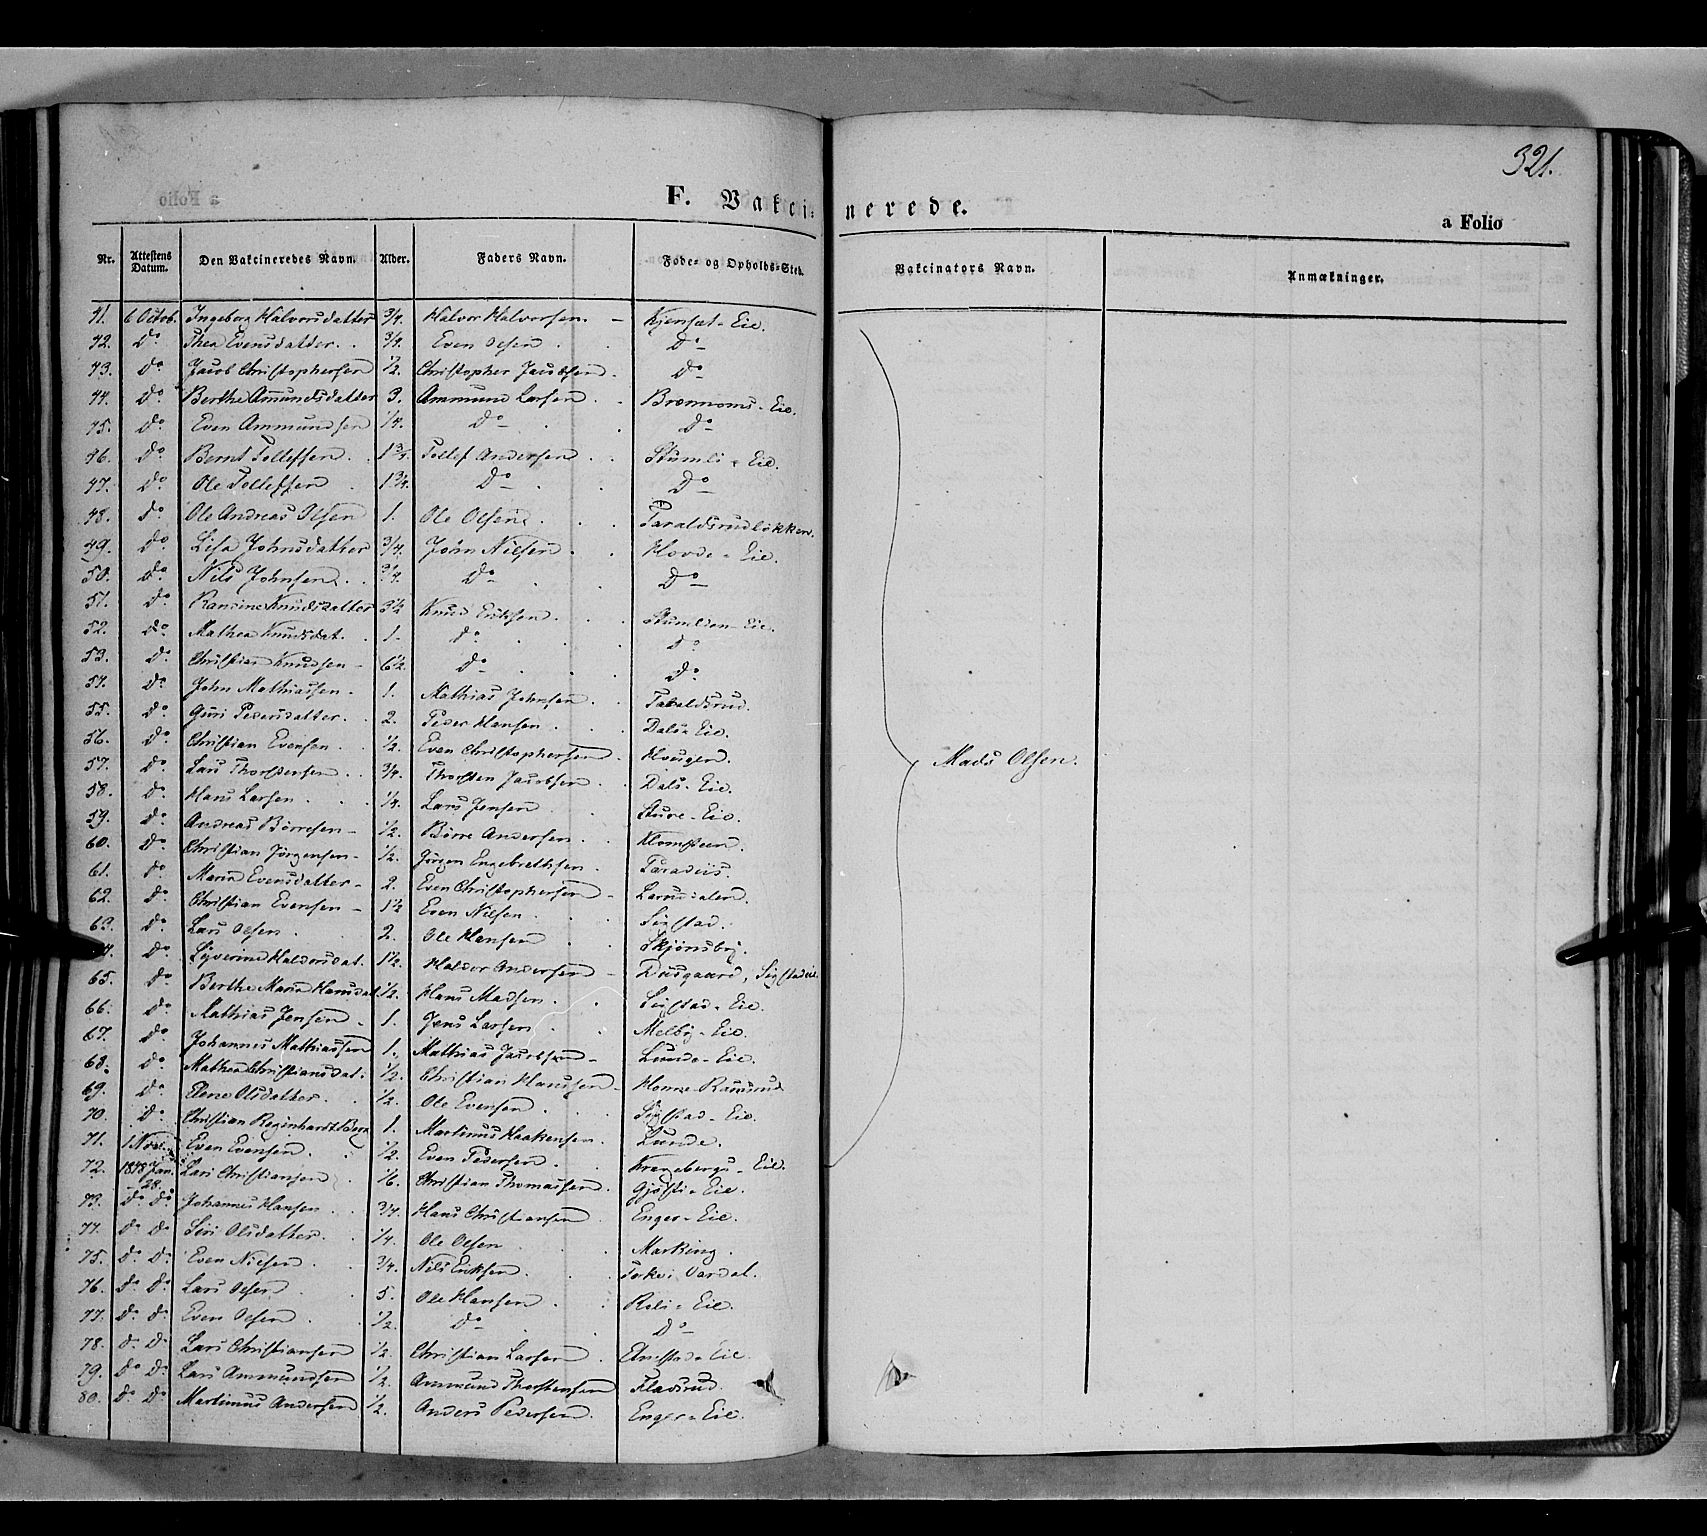 321.
F. Vakcinerede.
a Folio
Nr. Attestens Datum. Den Vakcineredes Navn. Alder. Faders Navn. Føde- og Opholds-Sted. Vakcinators Navn. Anmærkninger.
41. 6 Octob. Ingeborg Halvorsdatter 3/4. Halvor Halvorsen. Kjensæt-Eie.
42. Do Thea Evensdatter. 3/4. Even Olsen Do
43. Do Jacob Christophersen 1/2 Christopher Jacobsen. Do
44. Do Berthe Amundsdatter 3. Ammund Larsen. Brennoms-Eie.
45. Do Even Ammundsen 1/4. Do Do
46. Do Bernt Tollefsen. 1 3/4. Tollef Andersen. Stumli-Eie.
47. Do Ole Tollefsen 1 3/4. Do Do
48. Do Ole Andreas Olsen 1. Ole Olsen. Taraldsrudløkken.
49. Do Lisa Johnsdatter 3/4. John Nielsen. Hovde-Eie.
50. Do Nils Johnsen. 3/4. Do Do
51. Do Ransine Knudsdatter 3 1/2 Knud Eriksen. Stumlien-Eie.
52. Do Mathea Knudsdat. 1. Do Do
53. Do Christian Knudsen 6 1/2. Do Do
54. Do John Mathiassen. 1. Mathias Johnsen. Taraldsrud.
55. Do Guri Pedersdatter. 2. Peder Hansen. Dals-Eie.
56. Do Christian Evensen. 1/2. Even Christophersen. Hougen.
57. Do Lars Thorstensen. 3/4. Thorsten Jacobsen. Dals-Eie.
58. Do Hans Larsen. 1/4. Lars Jensen. Sture-Eie.
59. Do Andreas Börresen 1/2. Börre Andersen. Klomsteen.
60. Do Christian Jörgensen 1/2. Jörgen Engebrethsen. Paradiis.
61. Do Maria Evensdatter 2. Even Christophersen Larsdalen.
62. Do Christian Evensen 1 1/2 Even Nilsen. Sigstad.
63. Do Lars Olsen. 2. Ole Hansen Skjønsby.
Do Syverine Halvorsdat. 1 1/2. Halvor Andersen Sigstadeie.
65. Do Berthe Maria Hansdat. 1/2. Hans Madsen. Sigstad-Eie.
66. Do Mathias Jensen 1. Jens Larsen Melby-Eie.
67. Do Johannes Mathiassen 1. Mathias Jacobsen Lunde-Eie.
68. Do Mathea Christiansdat. 1/2. Christian Hanssen
69. Do Elene Olsdatter. 1/2. Ole Evensen Sigstad-Eie.
70. Do Christian Reginhardt Berg 1. Martinus Haakensen. Lunde.
71. 1 Nov. Even Evensen. 1/2. Even Pedersen. Krangebergs-Eie.
72. 1848 Jan. 28. Lars Christiansen 1/6. Christian Thomassen. Eie.
73. Do Do Johannes Hansen 3/4. Hans Christiansen Enger-Eie.
74. Do Do Siri Olsdatter. 1/4. Ole Olsen Marking.
75. Do Do Even Nielsen. 3/4. Nils Eriksen. Vardal.
76. Do Do Lars Olsen. 5. Ole Hansen. Roli-Eie.
77. Do Do Even Olsen. 1/2. Do Do
78. Do Do Lars Christiansen 1/2. Christian Larsen. Eie.
79. Do Do Lars Ammundsen 1/2. Ammund Thorstensen Fladsrud.
80. Do Do Martinus Andersen 1/2. Anders Pedersen. Enger-Eie.
Mads Olsen.